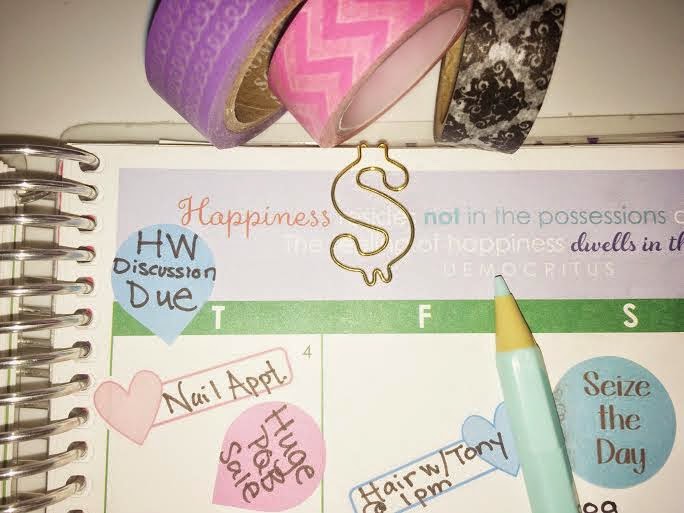 Happiness resides not in the possessions
The feeling of happiness dwells in th
DEMOCRITUS
HW
Discussion
Due
T F S
4
Nail Appt.
Huge
P&B
Sale
Hair w/Tony
@ 1pm
Seize
the
Day